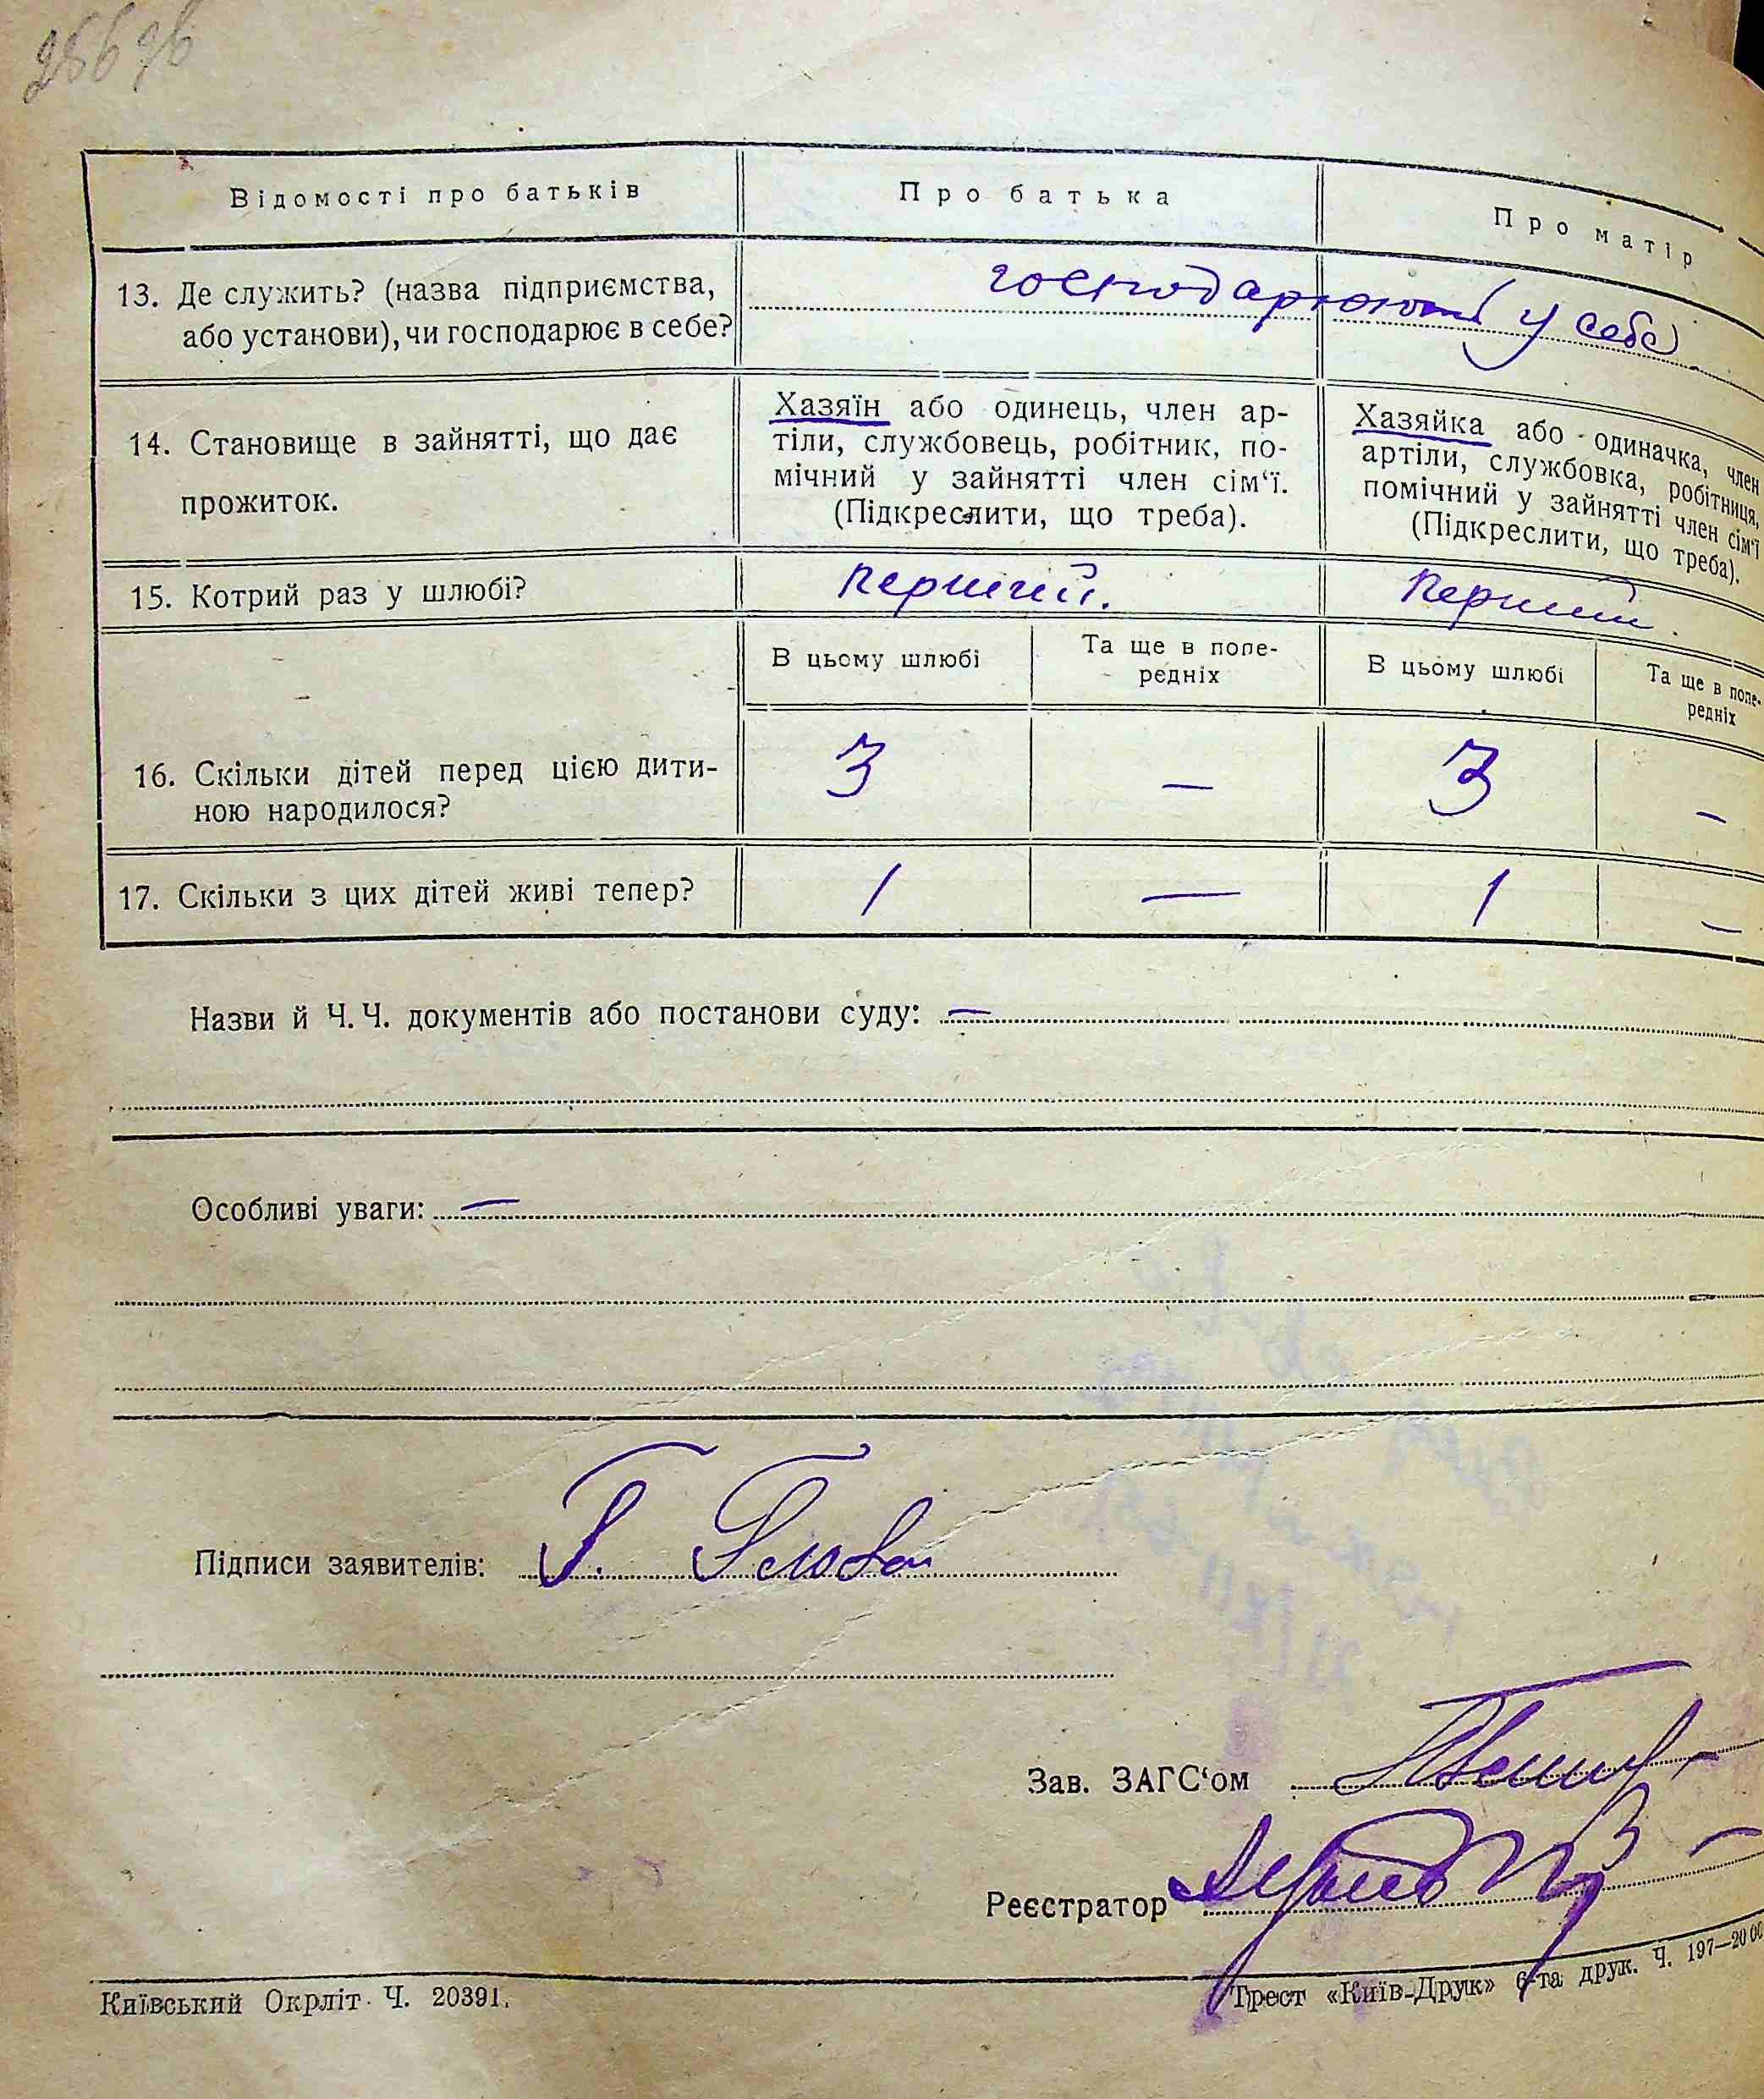 Відомості про батьків
Про батька
Про матір
13. Де служить? (назва підприємства,
або установи), чи господарює в себе?
господарюють у себе
14. Становище в зайнятті, що дає
прожиток.
Хазяїн або одинець, член ар-
тіли, службовець, робітник, по-
мічний у зайнятті член сім‘ї.
(Підкреслити, що треба).
Хазяйка або одиначка, член
артіли, службовка, робітниця,
помічний у зайнятті член сім‘ї
(Підкреслити, що треба).
15. Котрий раз у шлюбі?
перший.
перший.
В цьому шлюбі
Та ще в попе-
редніх
В цьому шлюбі
Та ще в попе-
редніх
16. Скільки дітей перед цією дити-
ною народилося?
3
—
3
—
17. Скільки з цих дітей живі тепер?
1
—
1
—
Назви й Ч.Ч. документів або постанови суду: —
Особливі уваги: —
Підписи заявителів: Г.
Зав. ЗАГС‘ом
Реєстратор
Київський Окрліт Ч. 20391.
Трест «Київ-Друк» 6-та друк. Ч. 197—2000